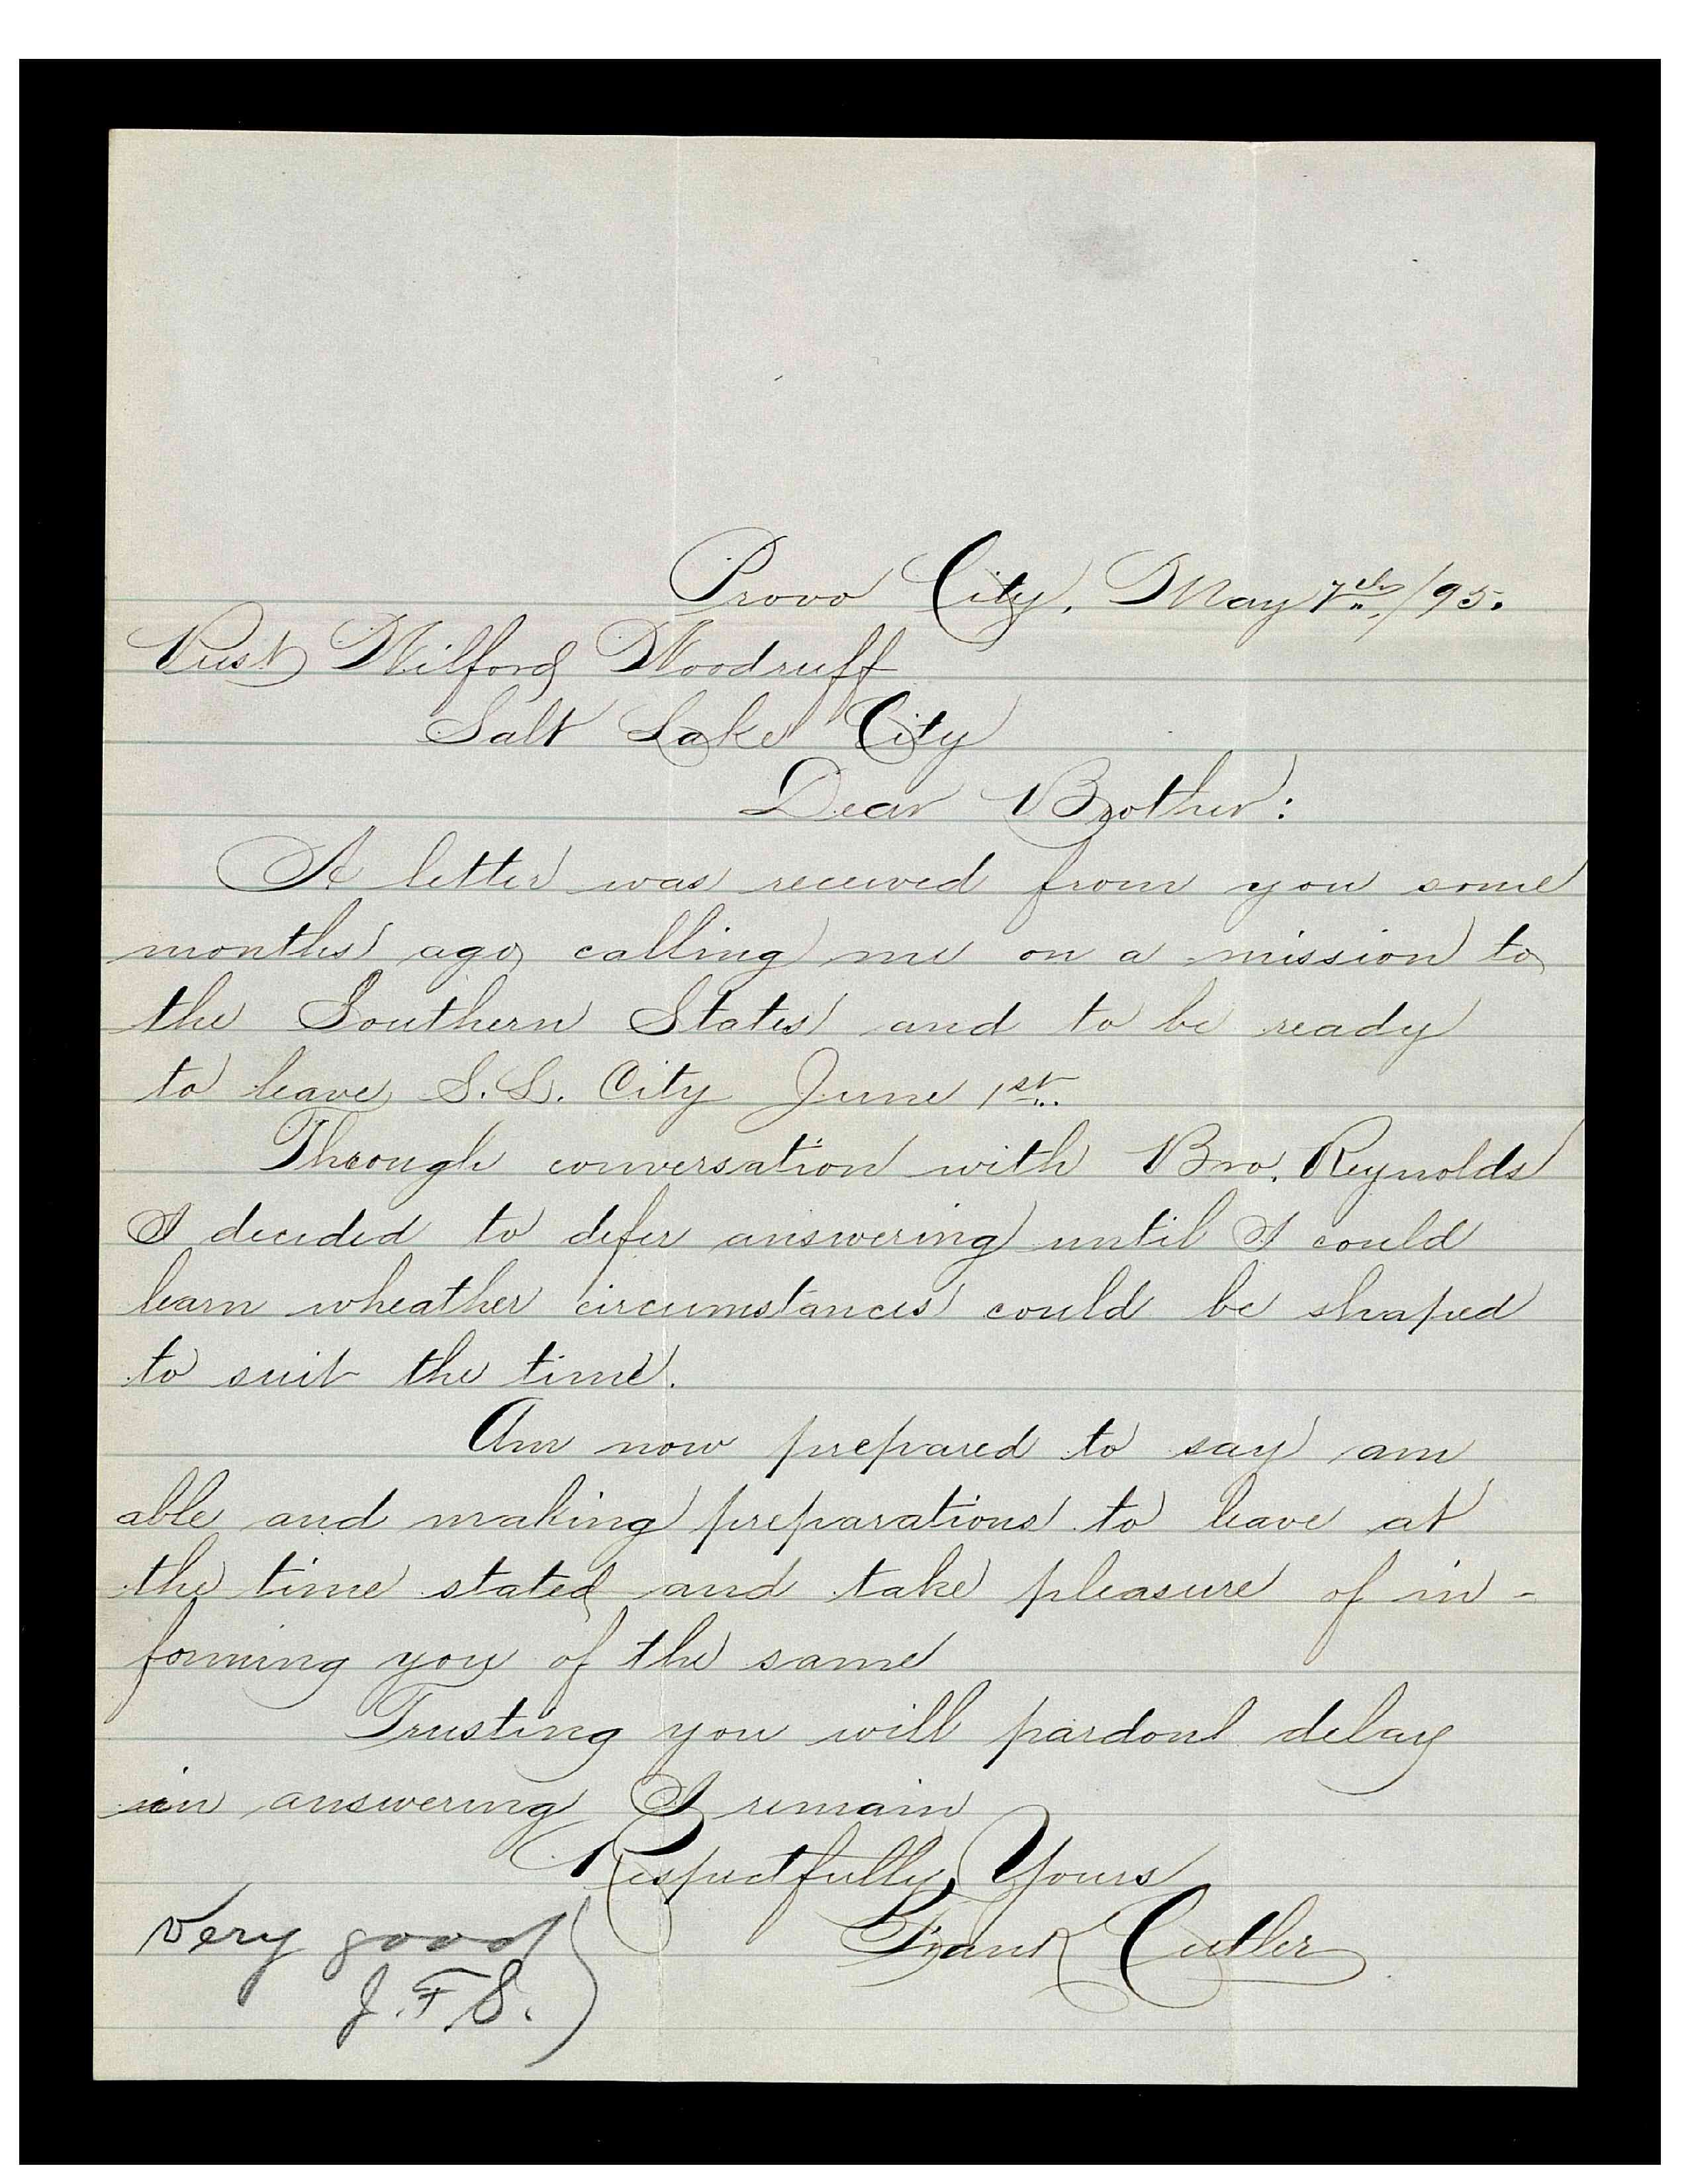 Provo City, May 7th/95.
Prest Wilford Woodruff
Salt Lake City
Dear Brother:
A letter was received from you some
months ago calling me on a mission to
the Southern States and to be ready
to leave S.L. City June 1st.
Through conversation with Bro. Reynolds
I decided to defer answering until I could
learn wheather circumstances could be shaped
to suit the time.
Am now prepared to say am
able and making preparations to leave at
the time stated and take pleasure of in-
forming you of the same
Trusting you will pardon delay
in answering I remain
Respectfully Yours
Frank Cutler
Very good
J.F.S.